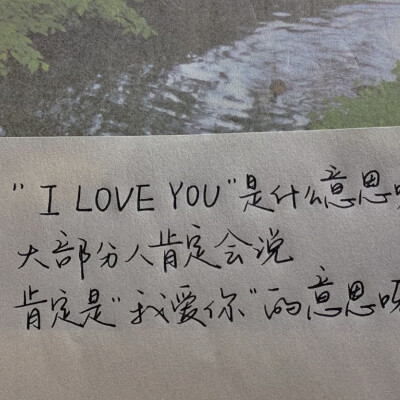 "I LOVE YOU"是什么意思
大部分人肯定会说
肯定是"我爱你"的意思呀